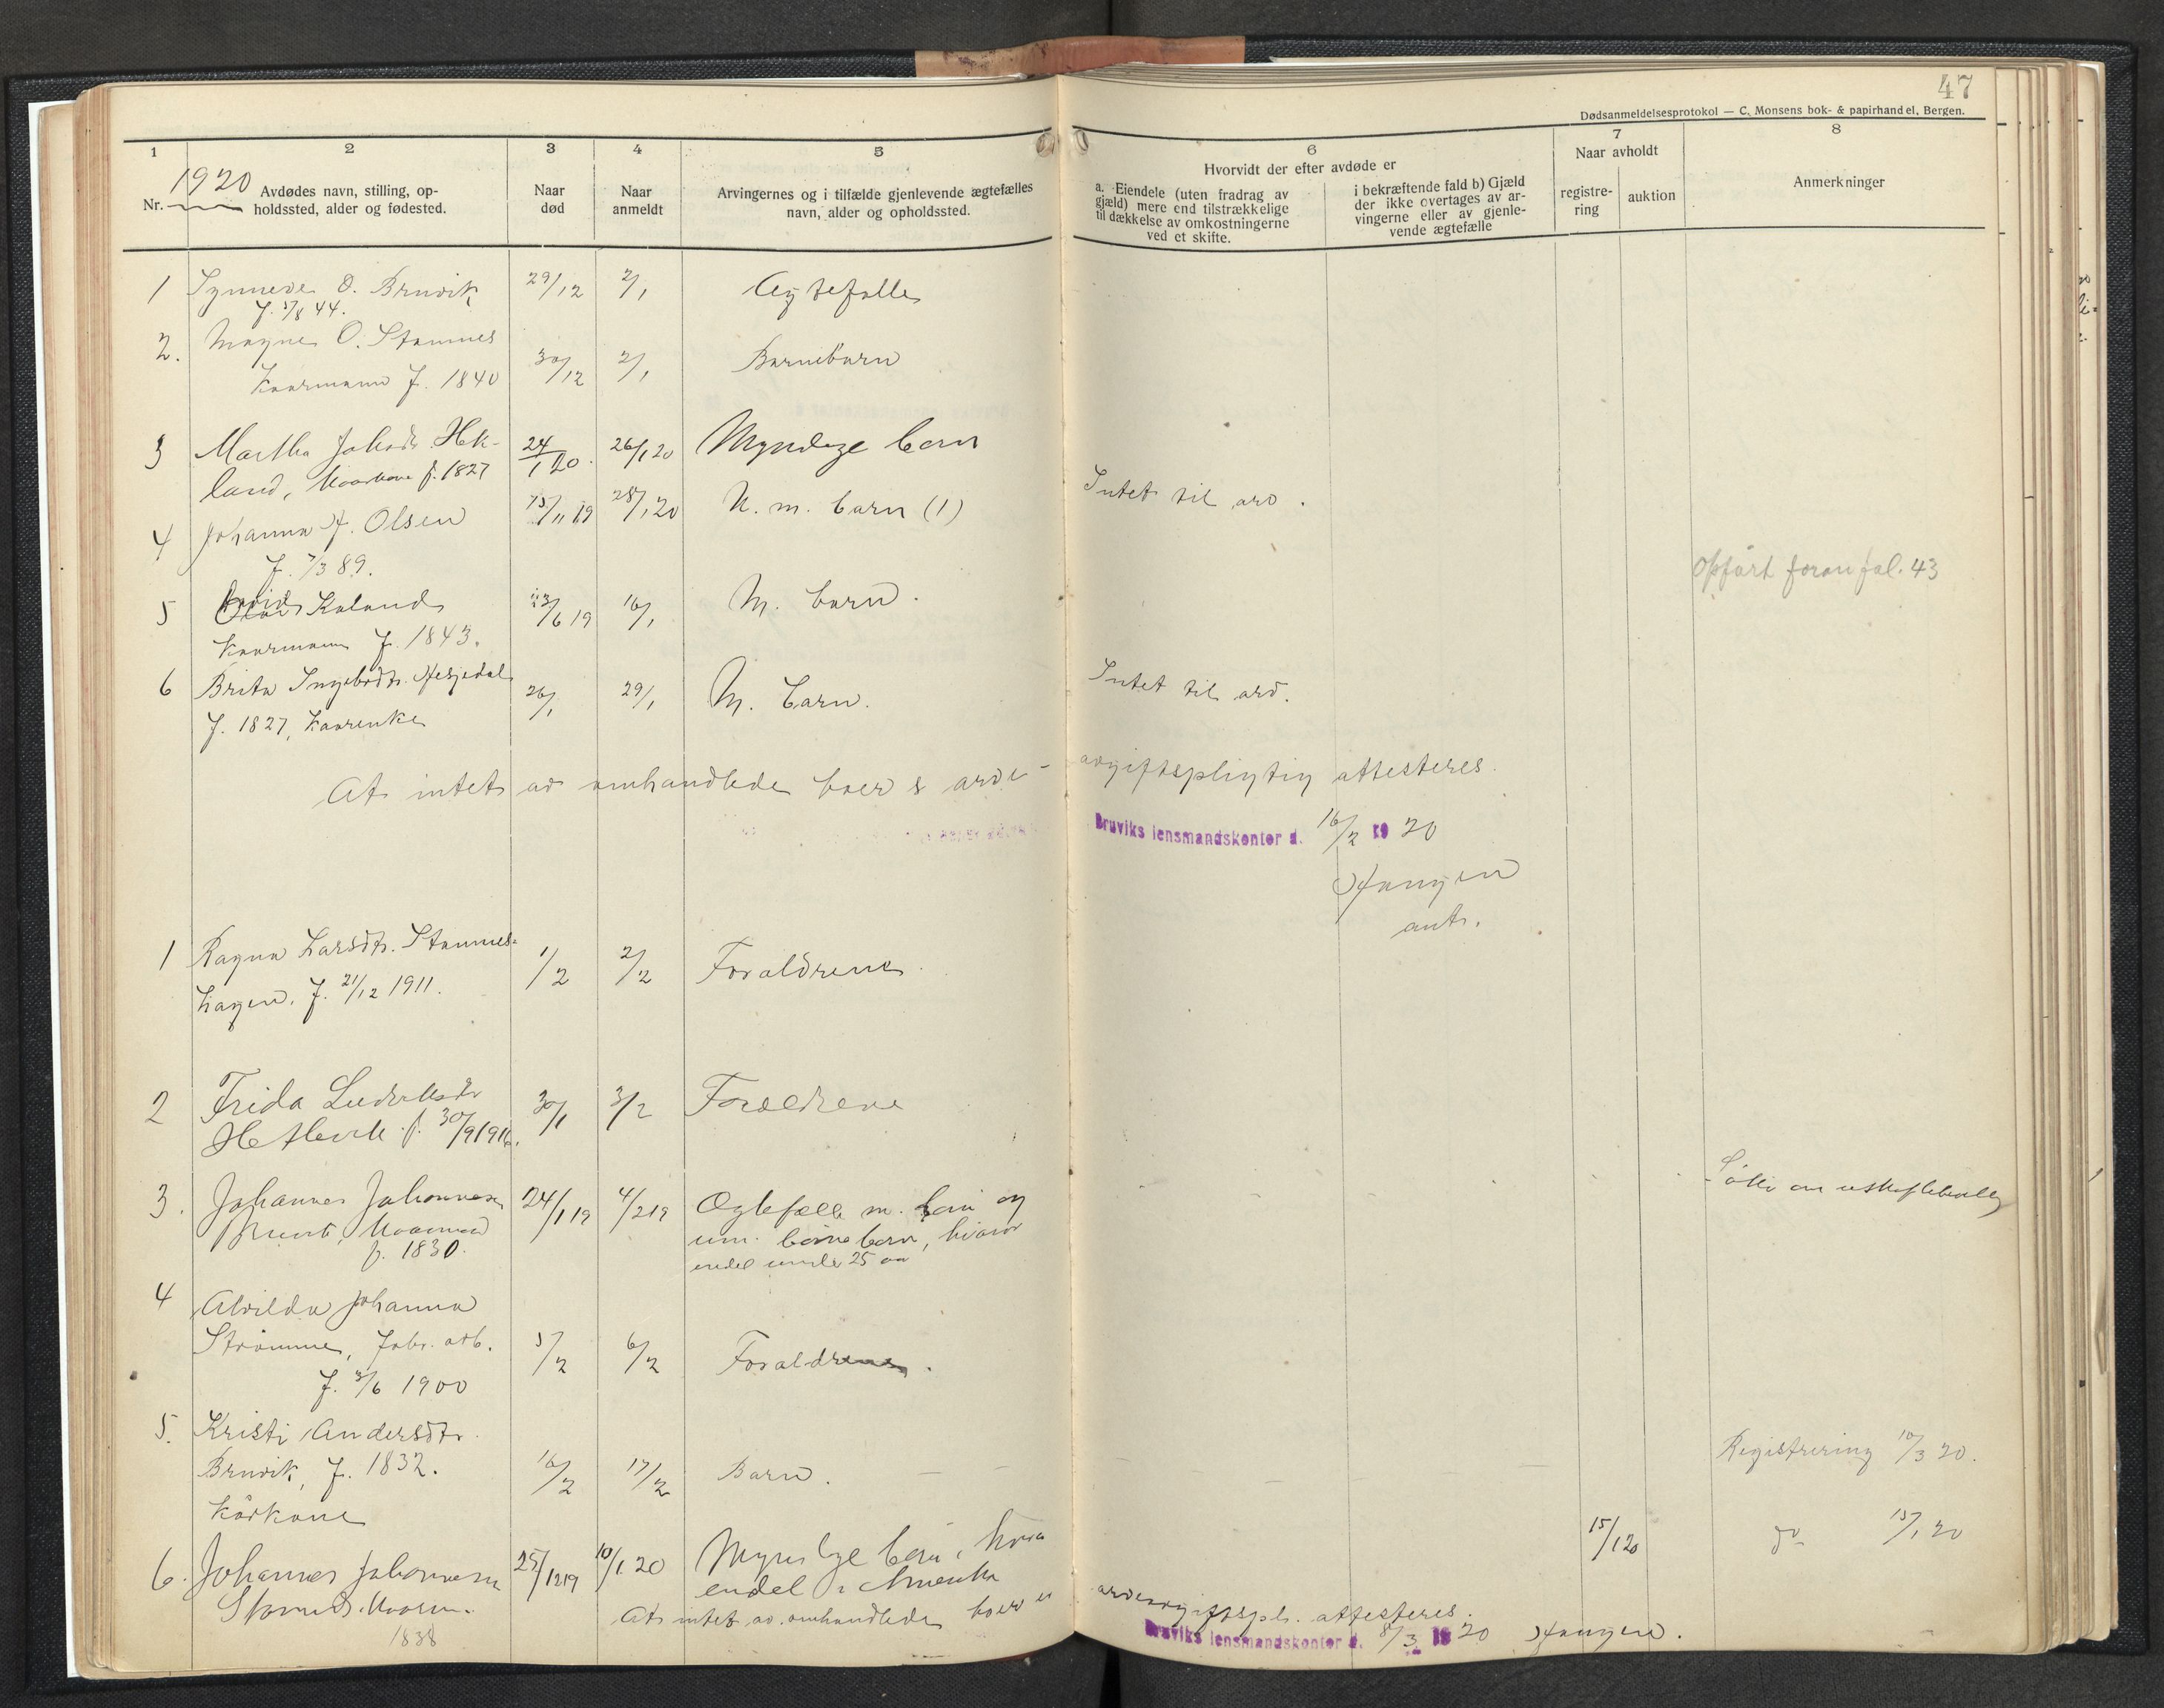 47
Dødsanmeldelsesprotokol — C. Monsens bok- & papirhandel, Bergen.
1 2 3 4 5 6 7 8
1920
Nr.
Avdødes navn, stilling, op-
holdssted, alder og fødested.
Naar
død
Naar
anmeldt
Arvingernes og i tilfælde gjenlevende ægtefælles
navn, alder og opholdssted.
Hvorvidt der efter avdøde er
a. Eiendele (uten fradrag av
gjæld) mere end tilstrækkelige
til dækkelse av omkostningerne
ved et skifte.
i bekræftende fald b) Gjæld
der ikke overtages av ar-
vingerne eller av gjenle-
vende ægtefælle
Naar avholdt
registre-
ring
auktion
Anmerkninger
1 Synneve O. Bruvik 29/12 2/1 Ægtefælle
f. /8 44.
2. Magne O. Stamnes
Kaarmann f. 1840 30/12 2/1 Barnebarn
3 Martha Johsdr. Hek- 24/1 20. 26/1 20 Myndige barn
land, Kaarkone f. 1827
4 Johanna J. Olsen 15/11 19 28/1 20 U. m. barn (1) Intet til arv.
f. 7/3 89.
Opført foran fol. 43
5 Kaland /6 19 16/1 M. barn.
Kaarmann f. 1843.
6 Brita Ingebrdtr. Hesjedal 26/1 29/1 M. barn. Intet til arv.
f. 1827, Kaarenke
At intet av omhandlede boer er arve- avgiftspligtig attesteres.
Bruviks lensmandskontor d. 16/2 19 20
Stangen
ant.
1 Ragna Larsdtr. Stamnes- 1/2 2/2 Forældrene.
hagen. f. 21/12 1911.
2 Frida Ludvksdtr 30/1 3/2 Forældrene
Hetlevik f. 30/9 1916.
3. Johannes Johannesen 24/1 19 4/2 19 Ægtefælle m. barn og
Kaarmand um. barnebarn, hvorav
f. 1830. endel under 25 aar
4 Alvilda Johanna
Strømme, fabr. arb. 5/2 6/2 Forældrene.
f. 3/6 1900
5. Kristi Andersdtr.
Bruvik, f. 1832. 16/2 17/2 Barn. — — Registrering 10/3 20.
Kårkone
6. Johannes Johannesen 25/12 19 10/1 20 Myndige barn, hvorav 15/1 20 do 15/1 20
Stamnes. Kaarm. endel i Amerika
1838
At intet av omhandlede boer er arveavgiftspl. attesteres.
Bruviks lensmandskontor d. 8/3 19 20 Stangen.